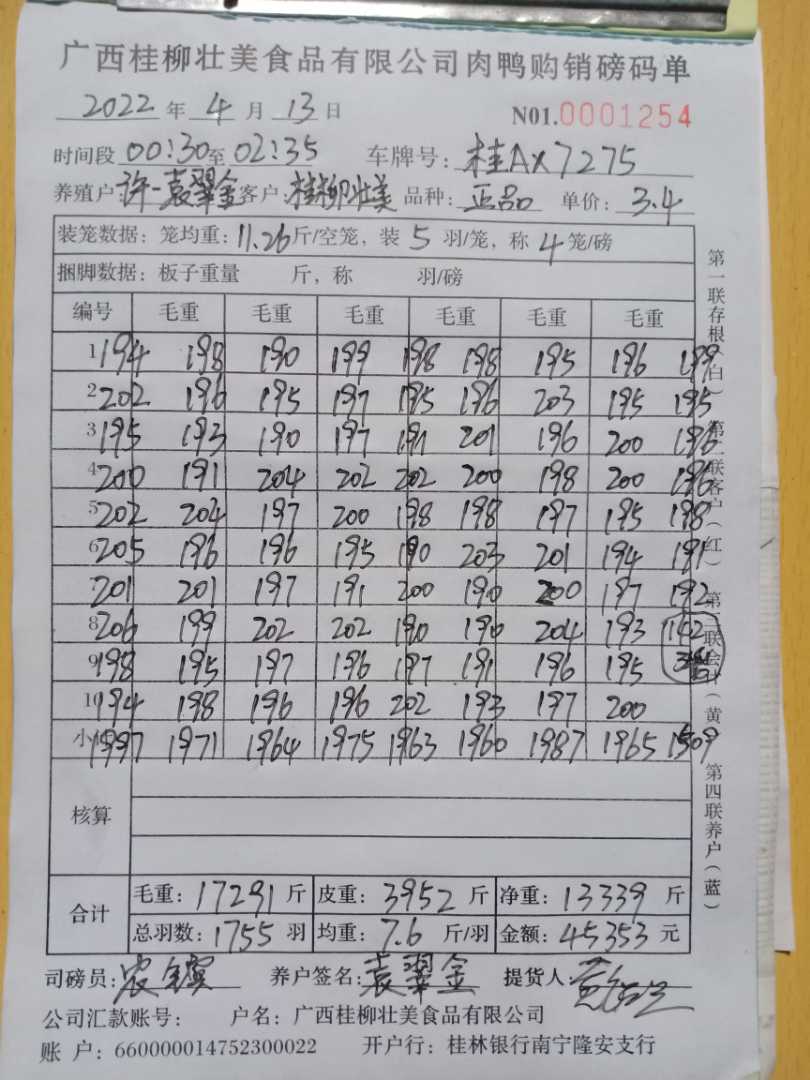 广西桂柳壮美食品有限公司肉鸭购销磅码单
2022 年 4 月 13 日 N01.0001254
时间段 00:30 至 02:35 车牌号: 桂AX7275
养殖户: 许一袁翠金 客户: 桂柳壮美 品种: 正品 单价: 3.4
装笼数据: 笼均重: 11.26 斤/空笼, 装 5 羽/笼, 称 4 笼/磅
捆脚数据: 板子重量 斤, 称 羽/磅
编号 毛重 毛重 毛重 毛重 毛重
1 194 198 190 199 198 198 195 196 199
2 202 196 195 197 195 196 203 195 195
3 195 193 190 197 191 201 196 200 196
4 200 191 204 202 202 200 198 200 196
5 202 204 197 200 198 198 197 195 198
6 205 196 196 195 190 203 201 194 191
7 201 201 197 191 200 190 200 197 192
8 206 199 202 202 190 190 204 193 142
9 198 195 197 196 197 191 196 195
10 194 198 196 196 202 193 197 200
小 1997 1971 1964 1975 1963 1960 1987 1965 1509
核算
合计 毛重: 17291 斤 皮重: 3952 斤 净重: 13339 斤
总羽数: 1755 羽 均重: 7.6 斤/羽 金额: 45353 元
司磅员: 养户签名: 袁翠金 提货人:
公司汇款账号: 户名: 广西桂柳壮美食品有限公司
账 户: 660000014752300022 开户行: 桂林银行南宁隆安支行
第一联存根(白) 第二联客户(红) 第三联会计(黄) 第四联养户(蓝)